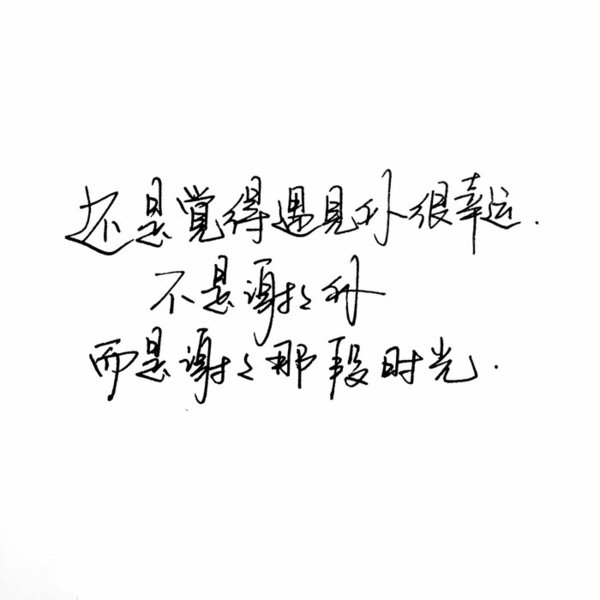 还是覺得遇見你很幸运.
不是谢谢你
而是谢谢那段时光.